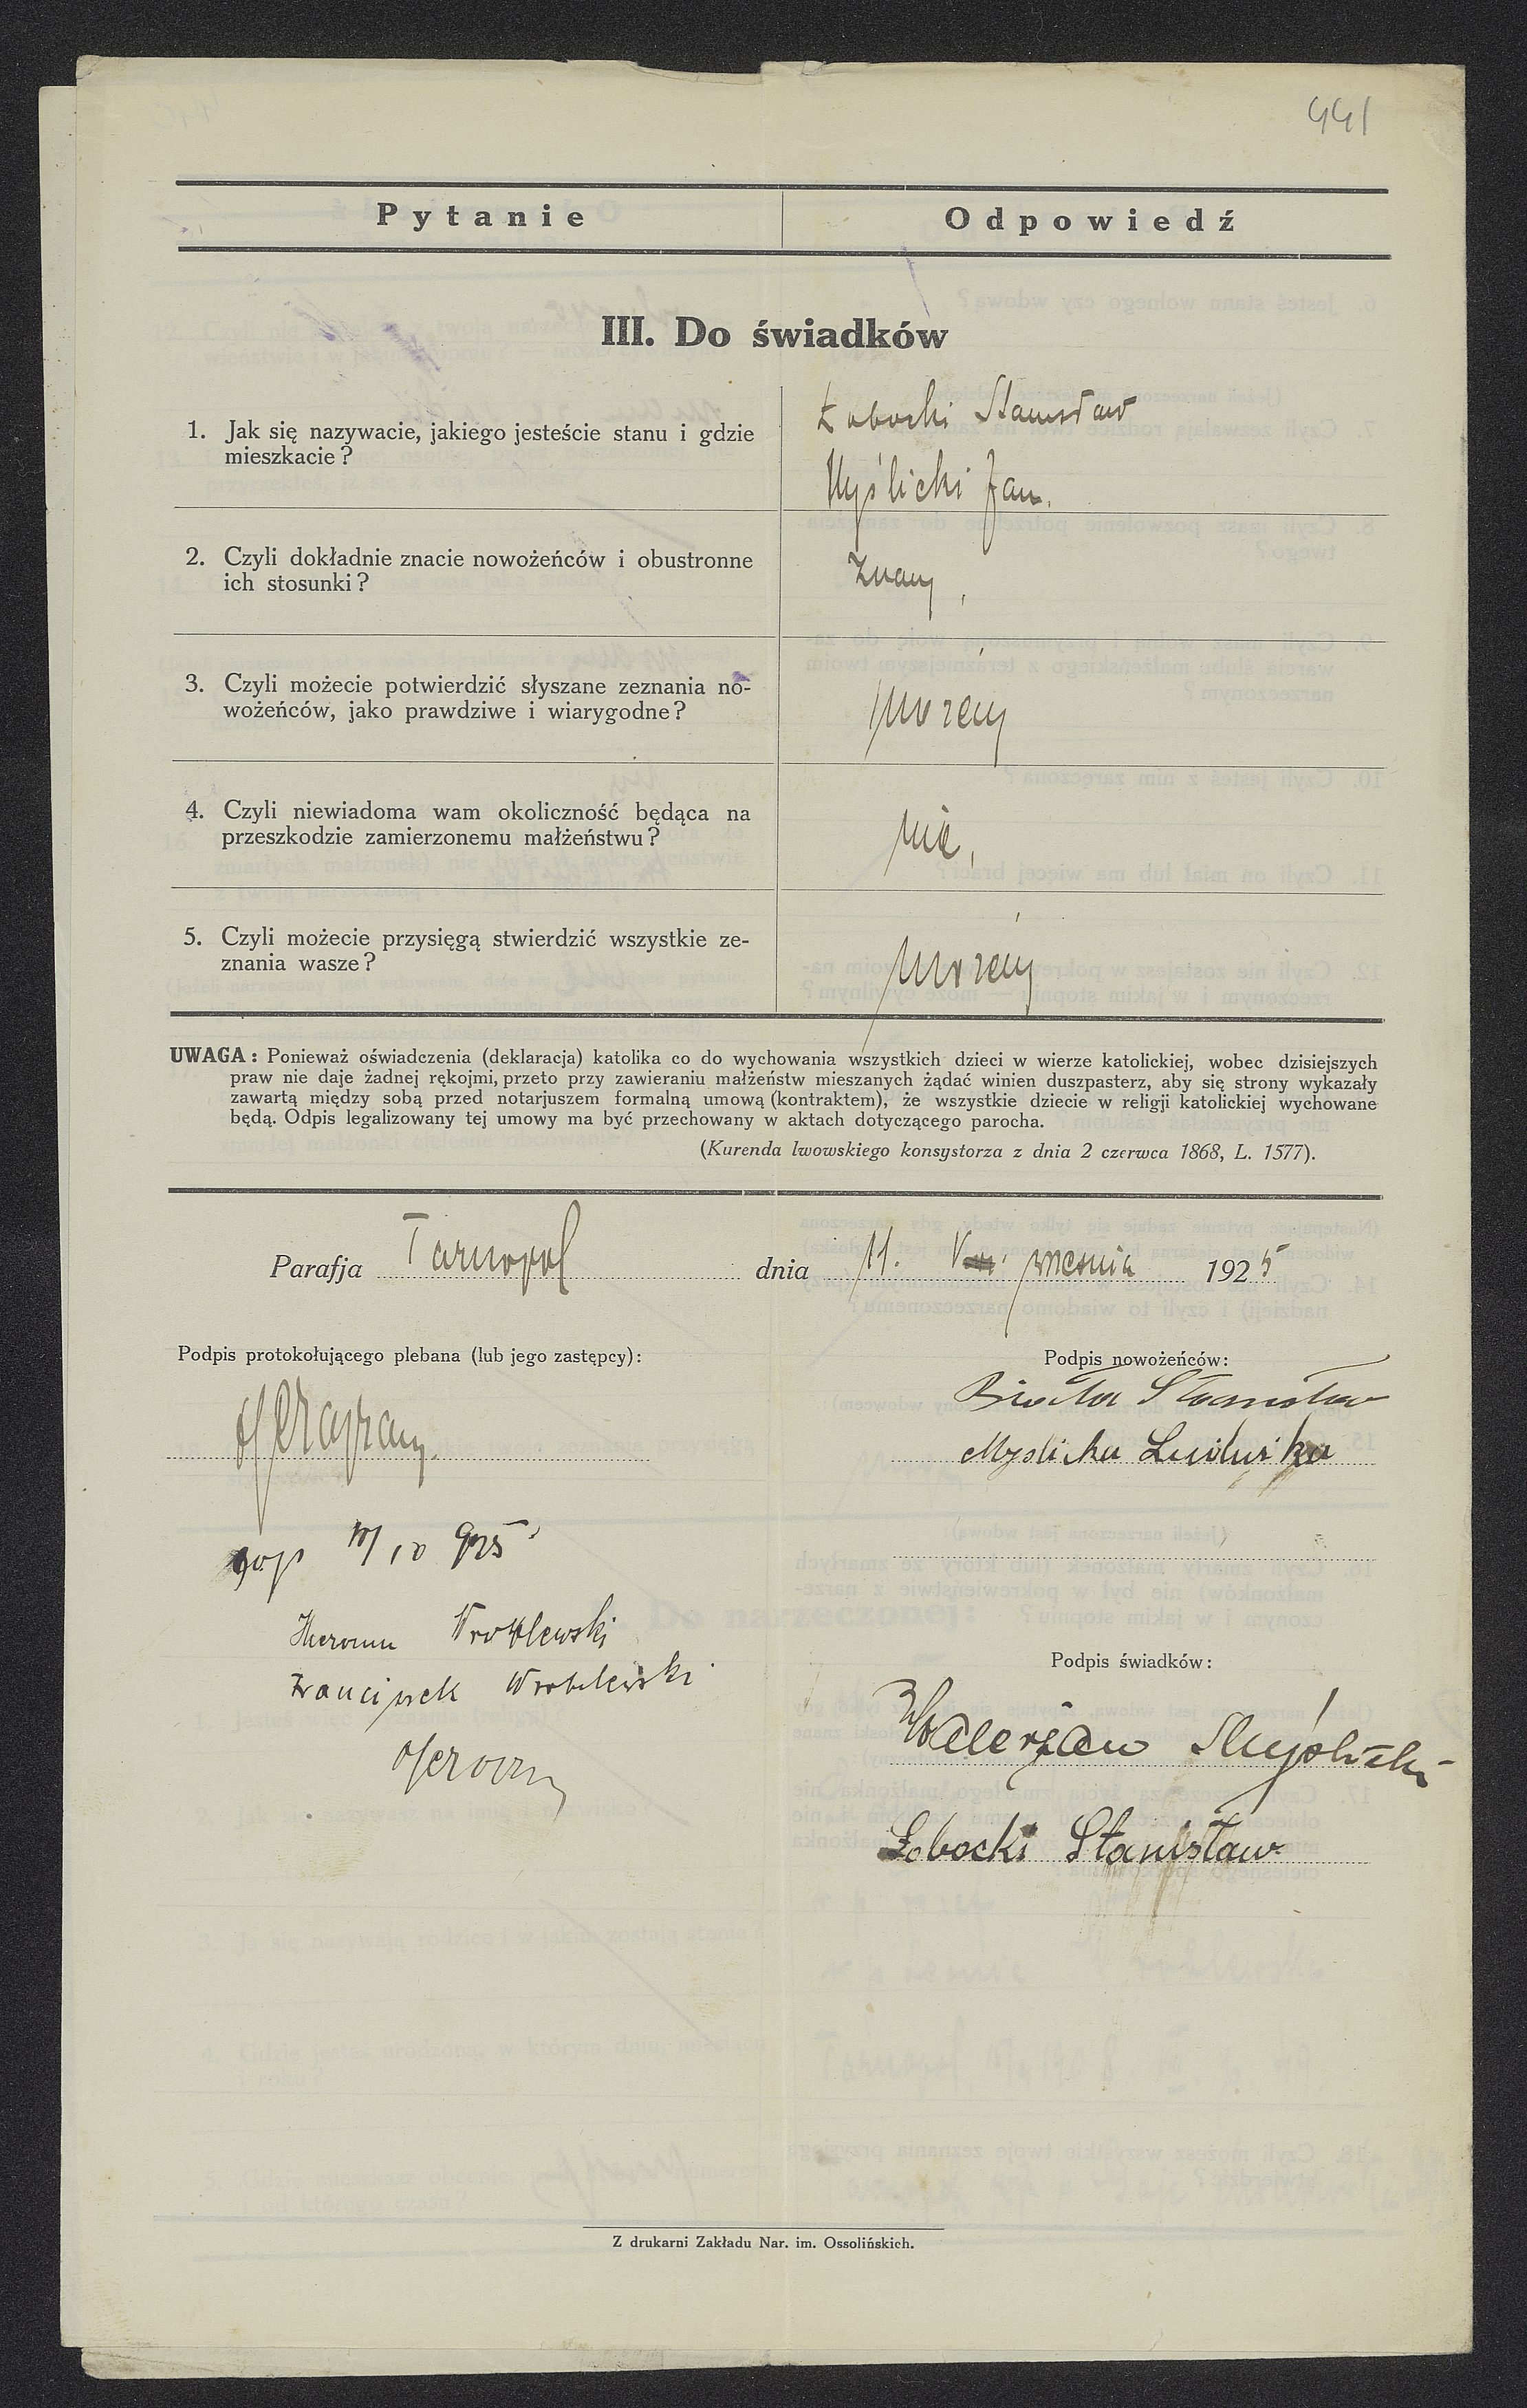 441
Pytanie
Odpowiedź
III. Do świadków
1. Jak się nazywacie, jakiego jesteście stanu i gdzie
mieszkacie?
Łobocki Stanisław
Myślicki Jan.
2. Czyli dokładnie znacie nowożeńców i obustronne
ich stosunki?
Znamy
3. Czyli możecie potwierdzić słyszane zeznania no-
wożeńców, jako prawdziwe i wiarygodne?
możemy
4. Czyli niewiadoma wam okoliczność będąca na
przeszkodzie zamierzonemu małżeństwu?
nie,
5. Czyli możecie przysięgą stwierdzić wszystkie ze-
znania wasze?
możemy
UWAGA: Ponieważ oświadczenia (deklaracja) katolika co do wychowania wszystkich dzieci w wierze katolickiej, wobec dzisiejszych
praw nie daje żadnej rękojmi, przeto przy zawieraniu małżeństw mieszanych żądać winien duszpasterz, aby się strony wykazały
zawartą między sobą przed notarjuszem formalną umową (kontraktem), że wszystkie dziecie w religji katolickiej wychowane
będą. Odpis legalizowany tej umowy ma być przechowany w aktach dotyczącego parocha.
(Kurenda lwowskiego konsystorza z dnia 2 czerwca 1868, L. 1577).
Parafja Tarnopol dnia 11. września 1925
Podpis protokołującego plebana (lub jego zastępcy):
Podpis nowożeńców:
Stanisław
Myslicka Ludwika
925
Wroblewski
Franciszek Wroblewski
Podpis świadków:
Walerjan Myślicki
Łobocki Stanisław
Z drukarni Zakładu Nar. im. Ossolińskich.